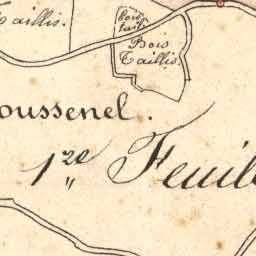 Taillis.
bois
tail.
Bois
Taillis.
oussenel.
1re Feuil